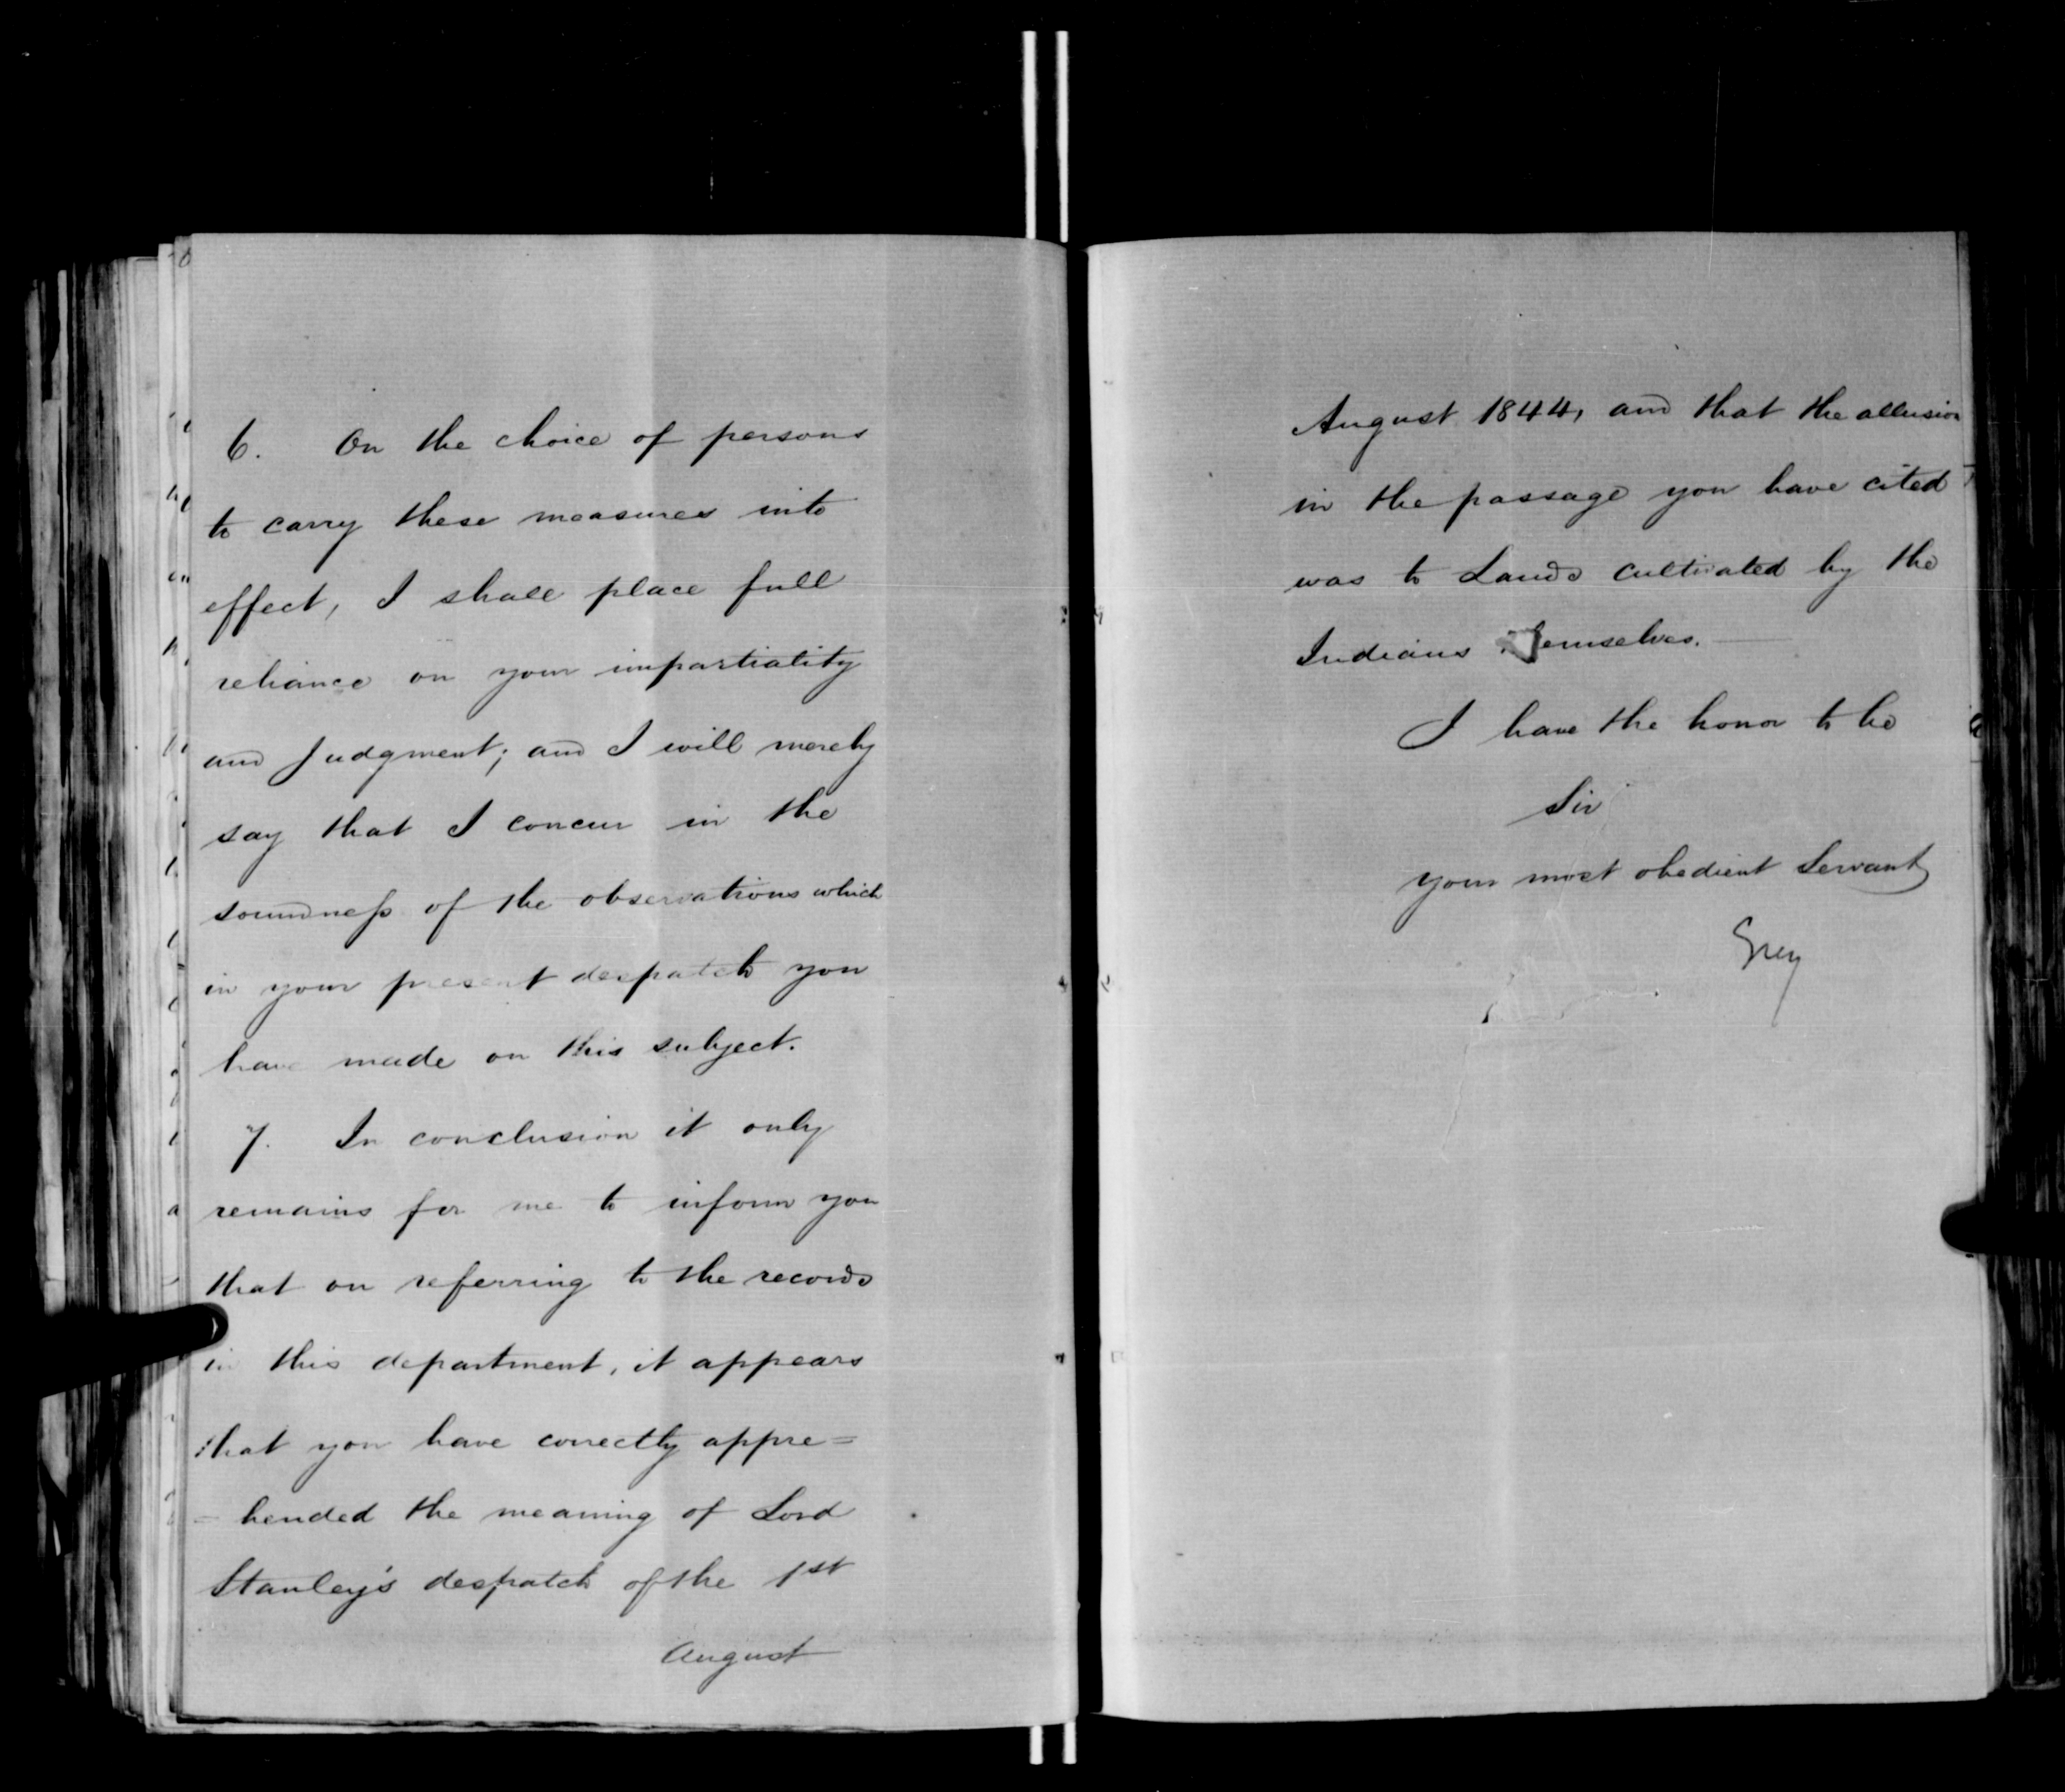 6. On the choice of persons
to carry these measures into
effect, I shall place full
reliance on your impartiality
and Judgment; and I will merely
say that I concur in the
soundneſs of the observations which
in your present despatch you
have made on this subject.
7. In conclusion it only
remains for me to inform you
that on referring to the records
in this department, it appears
that you have correctly appre=
=hended the meaning of Lord
Stanley's despatch of the 1st
August
August 1844, and that the allusion
in the passage you have cited
was to Lands cultivated by the
Indians themselves.
I have the honor to be
Sir
your most obedient Servant
Grey